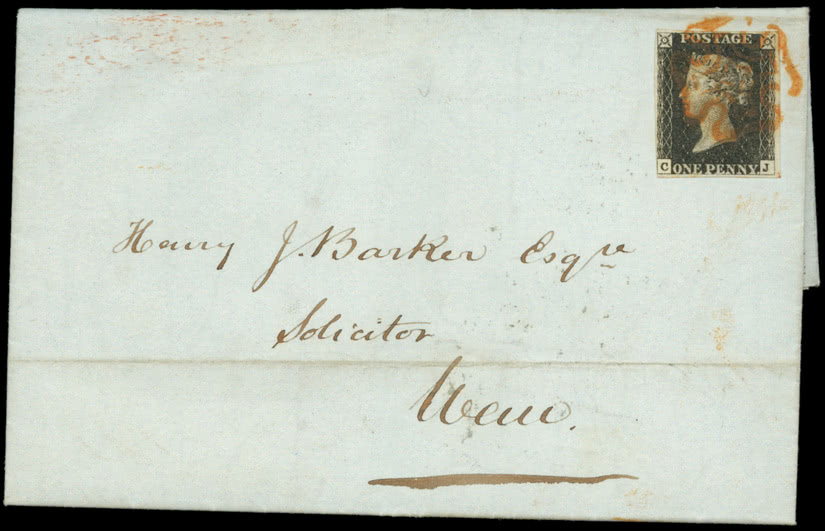 POSTAGE
C ONE PENNY J
Henry J. Barker Esqre
Solicitor
Wem.